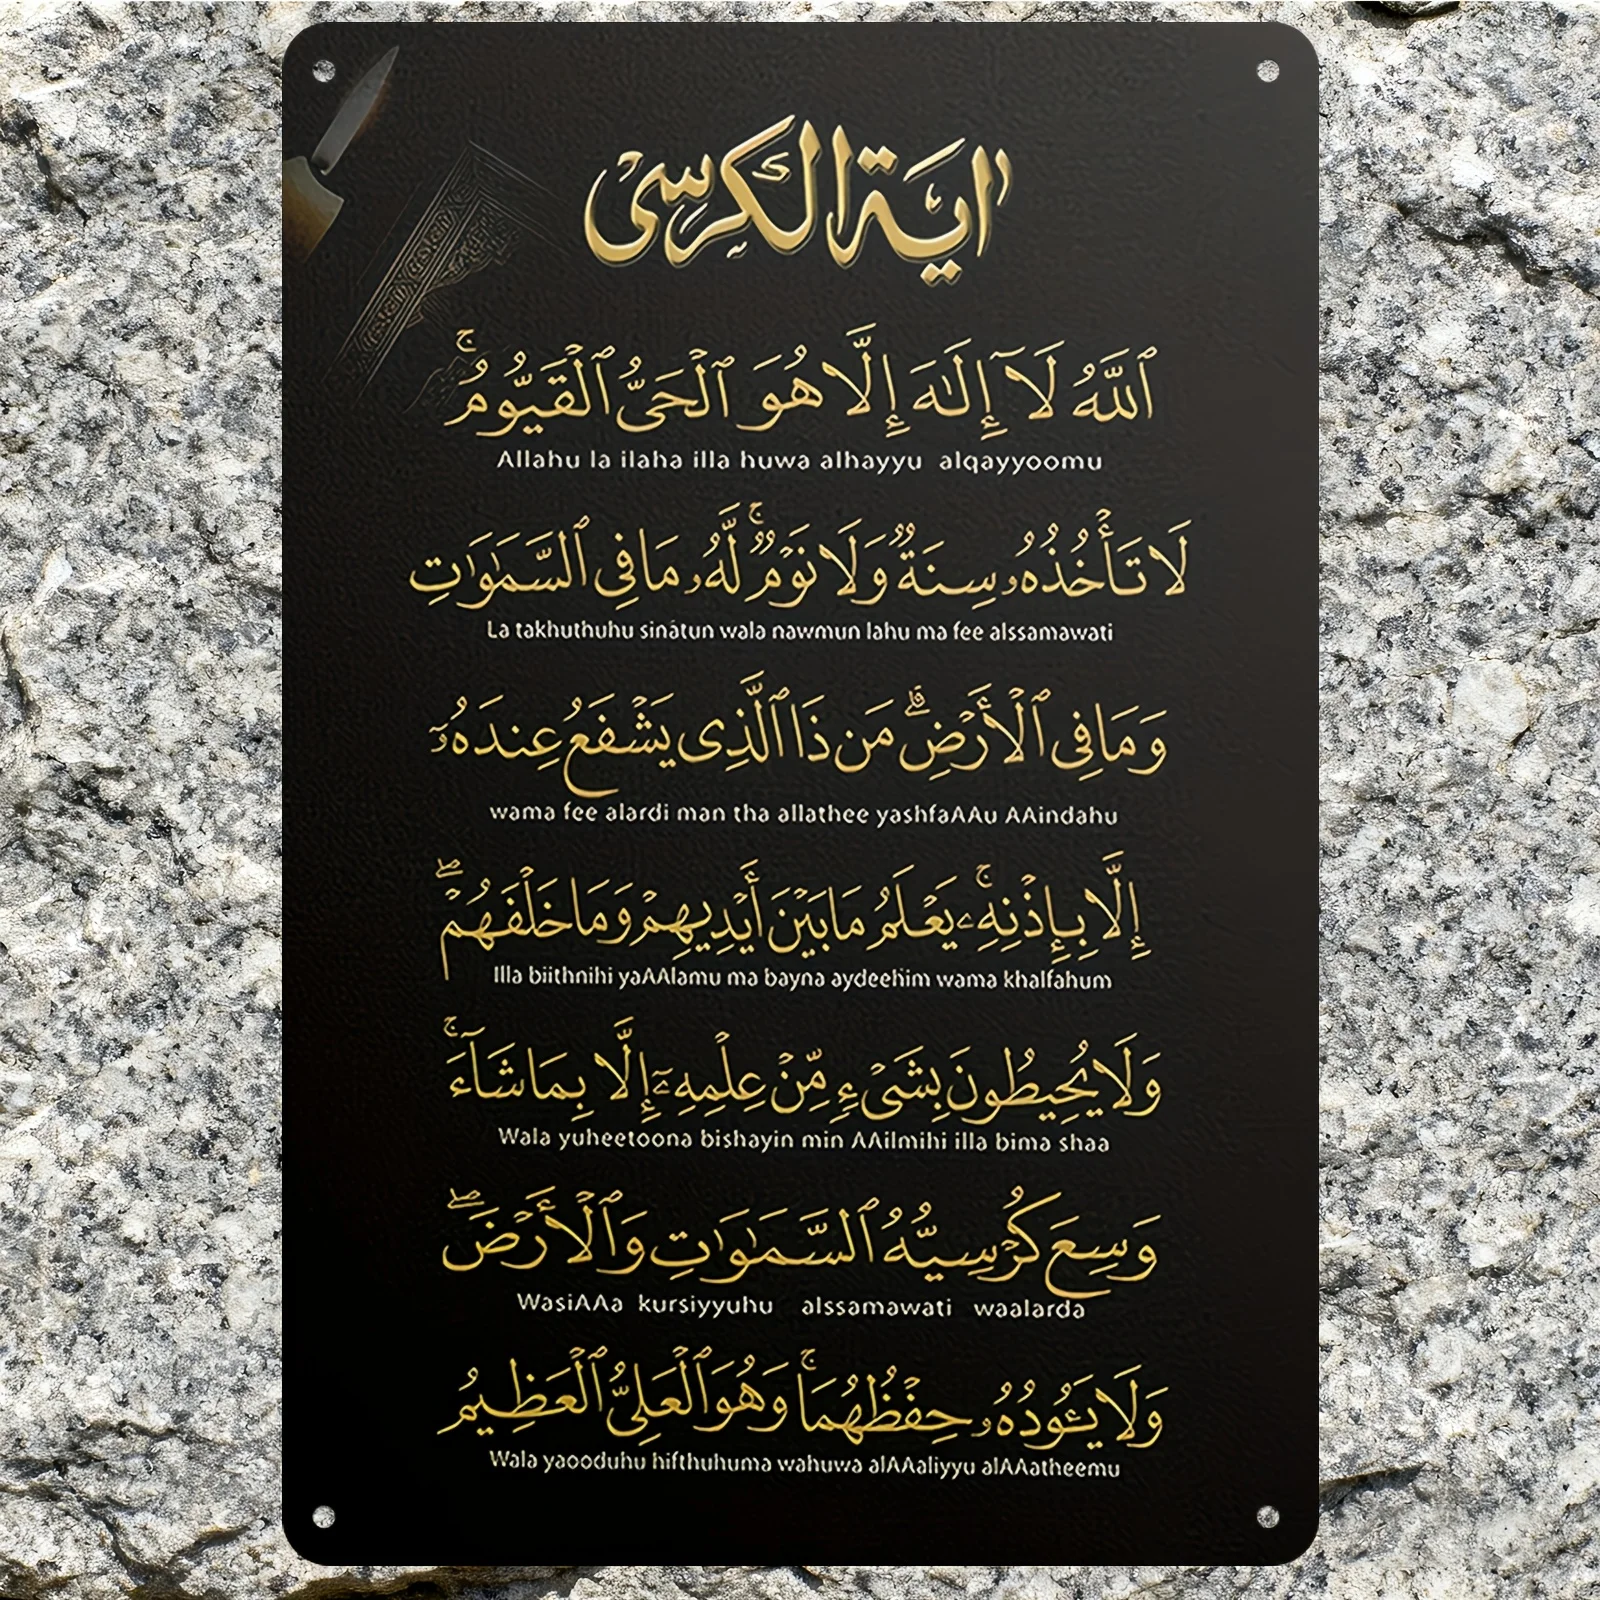 اية الكرسى
ٱللَّهُ لَآ إِلَٰهَ إِلَّا هُوَ ٱلْحَىُّ ٱلْقَيُّومُ ۚ
Allahu la ilaha illa huwa alhayyu alqayyoomu
لَا تَأْخُذُهُۥ سِنَةٌ وَلَا نَوْمٌ ۚ لَّهُۥ مَا فِى ٱلسَّمَٰوَٰتِ
La takhuthuhu sinátun wala nawmun lahu ma fee alssamawati
وَمَا فِى ٱلْأَرْضِ ۗ مَن ذَا ٱلَّذِى يَشْفَعُ عِندَهُۥٓ
wama fee alardi man tha allathee yashfaAAu AAindahu
إِلَّا بِإِذْنِهِۦ ۚ يَعْلَمُ مَا بَيْنَ أَيْدِيهِمْ وَمَا خَلْفَهُمْ ۖ
Illa biithnihi yaAAlamu ma bayna aydeehim wama khalfahum
وَلَا يُحِيطُونَ بِشَىْءٍ مِّنْ عِلْمِهِۦٓ إِلَّا بِمَا شَآءَ ۚ
Wala yuheetoona bishayin min AAilmihi illa bima shaa
وَسِعَ كُرْسِيُّهُ ٱلسَّمَٰوَٰتِ وَٱلْأَرْضَ ۖ
WasiAAa kursiyyuhu alssamawati waalarda
وَلَا يَـُٔودُهُۥ حِفْظُهُمَا ۚ وَهُوَ ٱلْعَلِىُّ ٱلْعَظِيمُ
Wala yaooduhu hifthuhuma wahuwa alAAaliyyu alAAatheemu